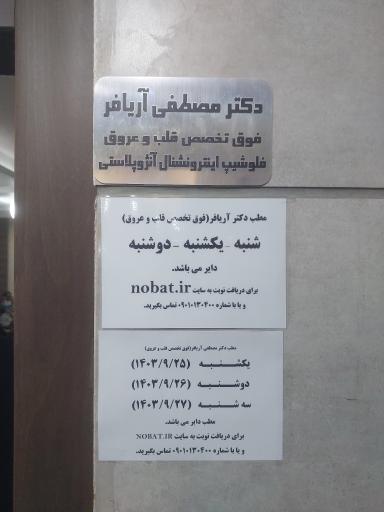 دکتر مصطفی آریافر
فوق تخصص قلب و عروق
فلوشیپ اینترونشنال آنژوپلاستی
مطب دکتر آریافر(فوق تخصص قلب و عروق)
شنبه - یکشنبه - دوشنبه
دایر می باشد.
برای دریافت نوبت به سایت nobat.ir
و یا با شماره ۰۹۰۱۰۱۳۰۴۰۰ تماس بگیرید.
مطب دکتر مصطفی آریافر(فوق تخصص قلب و عروق)
یکشنبه (۱۴۰۳/۹/۲۵)
دوشنبه (۱۴۰۳/۹/۲۶)
سه شنبه (۱۴۰۳/۹/۲۷)
مطب دایر می باشد.
برای دریافت نوبت به سایت NOBAT.IR
و یا با شماره ۰۹۰۱۰۱۳۰۴۰۰ تماس بگیرید.